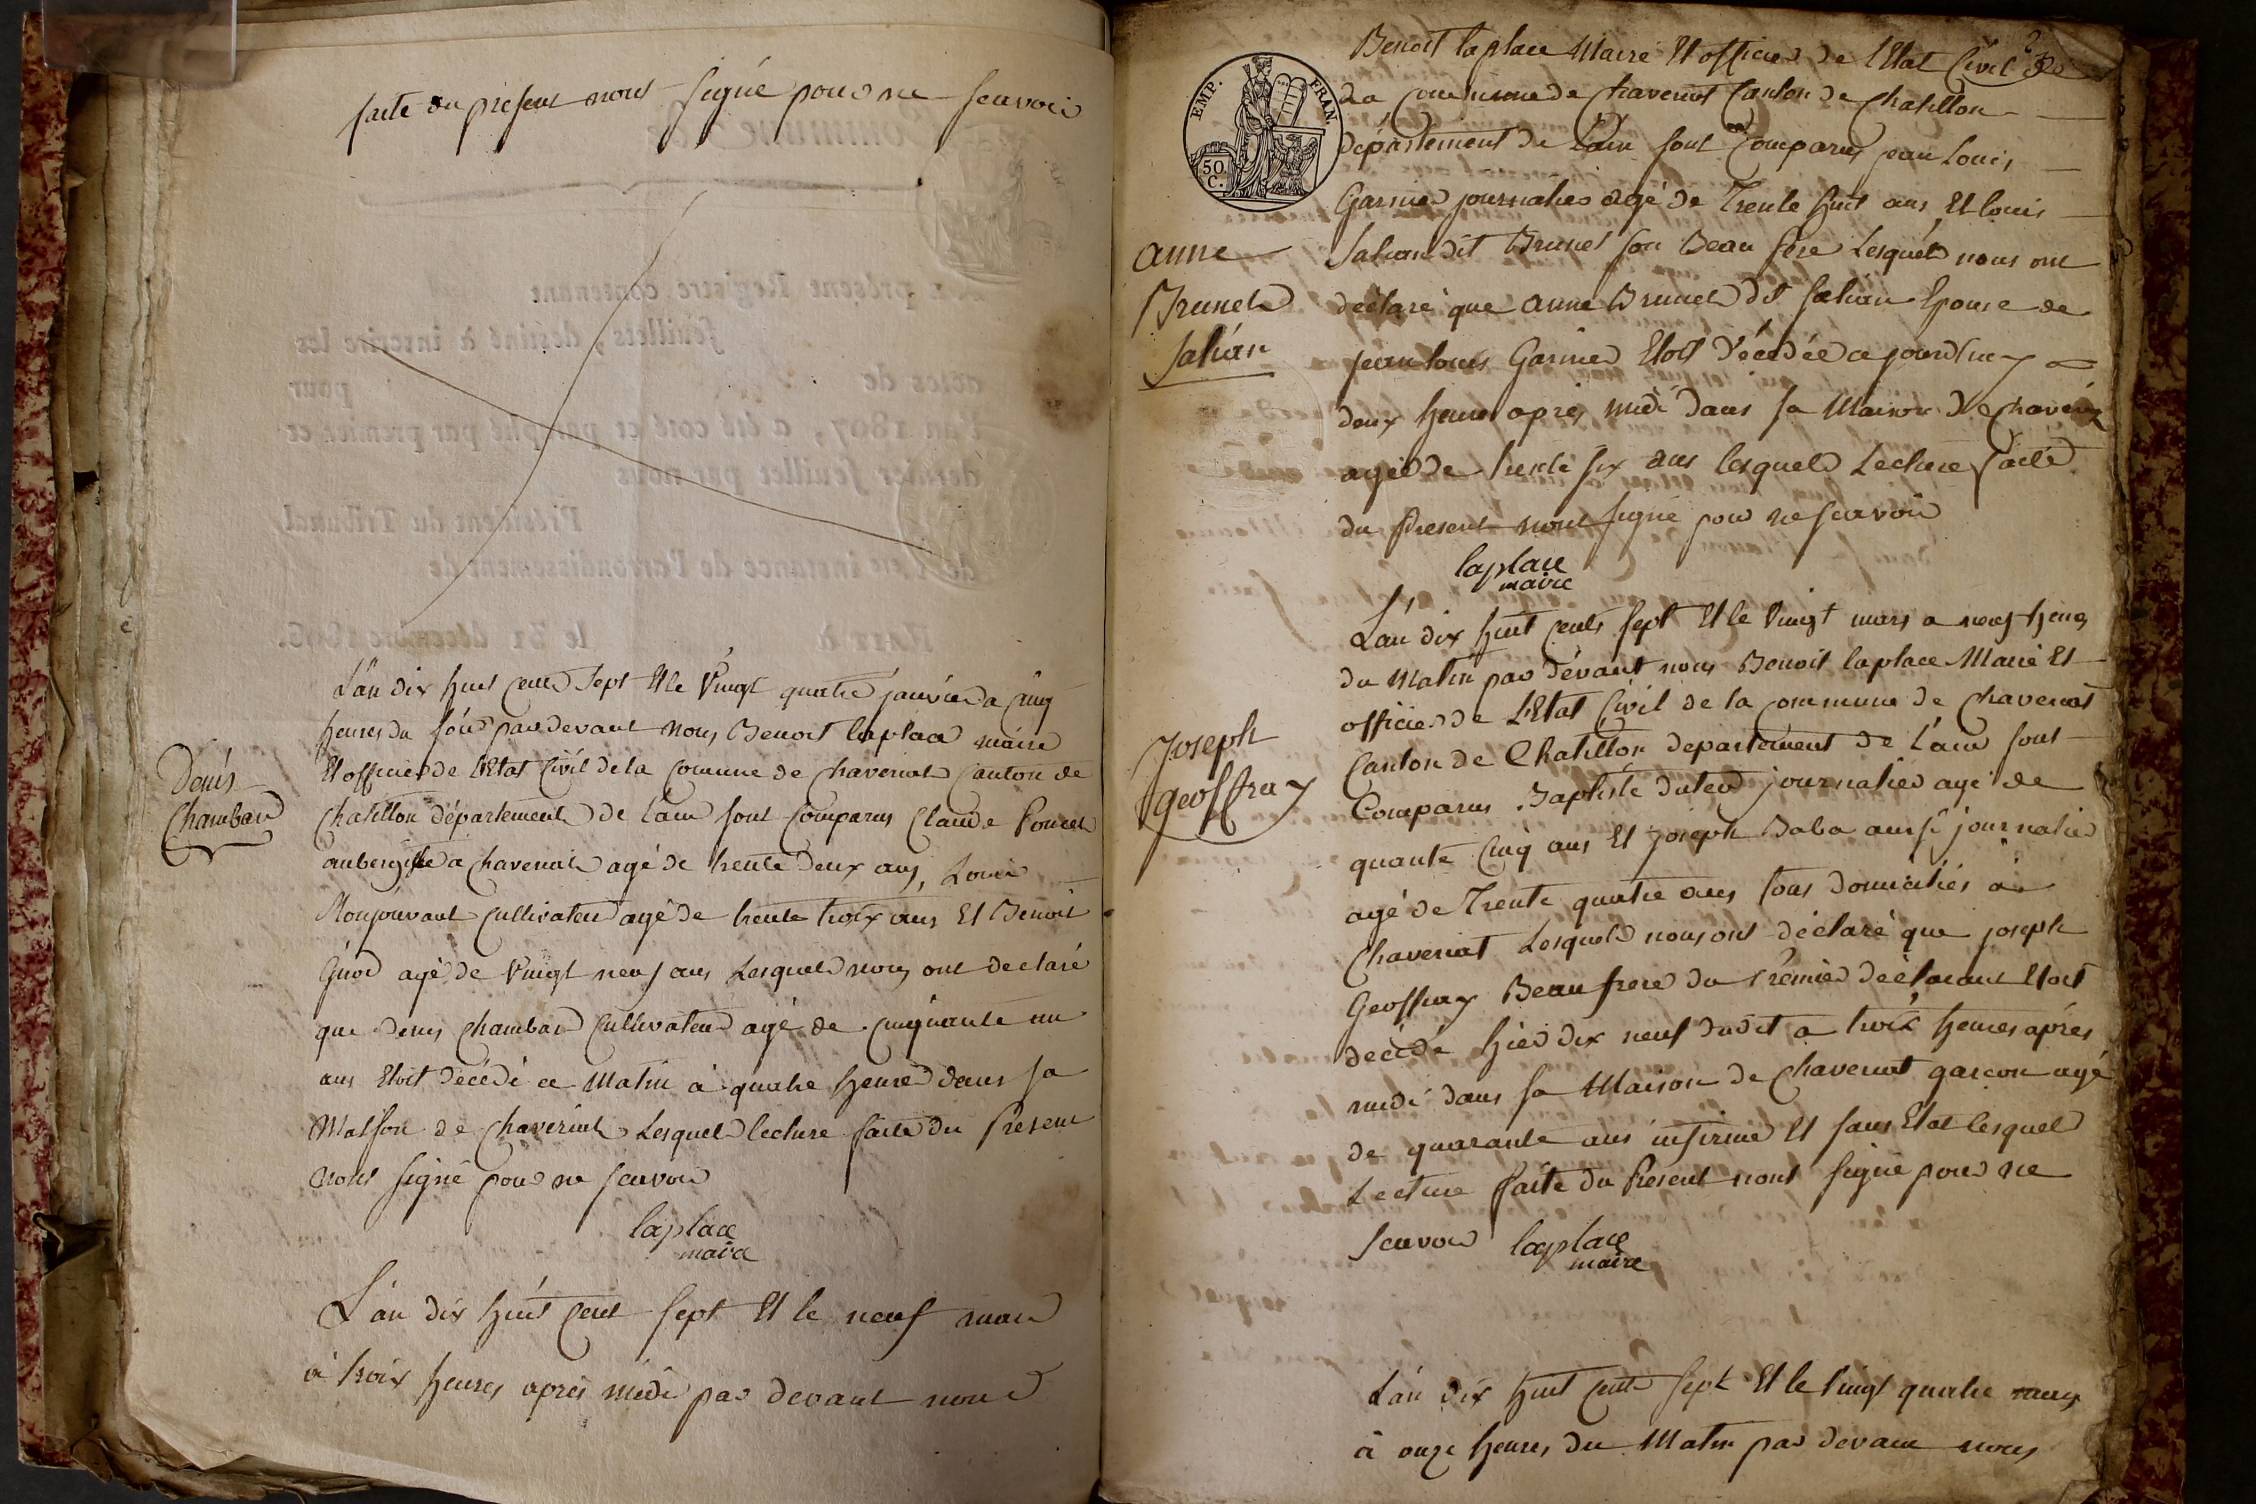 faite du present nont signé pour ne scavoir
L'an dix huit cents sept Et le Vingt quatre janvier a Cinq
heures du soir pardevant nous Benoit laplace maire
Et officier de L'Etat Civil de la Comune de Chaveriat Canton de
Chatillon département de Lain sont Comparus Claude Poncet
aubergiste a Chaveriat agé de trente deux ans, Louis
Monjouvant Cultivateur agé de trente troix ans Et Benoit
agé de Vingt neuf ans Lesquels nous ont declaré
que denis Chambard Cultivateur agé de Cinquante un
ans Etoit décédé ce Matin à quatre heures dans sa
Maison de Chaveriat Lesquels lecture faite du Present
nont signé pour ne scavoir
laplace
maire
Denis
Chambard
L'an dix huit Cent sept Et le neuf mars
à troix heures après midi par devant nous
Benoit laplace Maire Et officier de l'Etat Civil de
La Commune de Chaveriat Canton de Chatillon
département de Lain sont Comparus jean Louis
Garnier journalier agé de Trente huit ans Et louis
Salian dit Brunet son Beau frere Lesquels nous ont
déclaré que anne Brunet dit Salian Epouse de
jean louis Garnier Etoit décédée ajourdhuy a
deux heures après midi dans sa Maison de Chaveriat
agée de trente six ans lesquels Lecture faite
du Present nont signé pour ne scavoir
laplace
maire
EMP. FRAN.
50 C.
anne
Brunet
Salian
L'an dix huit Cents sept Et le Vingt mars a neuf heures
du Matin par dévant nous Benoit laplace Maire Et
officier de L'Etat Civil de la Commune de Chaveriat
Canton de Chatillon departement de Lain sont
Comparus Baptiste journalier agé de
quante Cinq ans Et joseph Baba aussi journalier
agé de Trente quatre ans tous domiciliés à
Chaveriat Lesquels nous ont déclaré que joseph
Geoffray Beau frere du Premier déclarant Etoit
décédé hier dix neuf dudit a troix heures après
midi dans sa Maison de Chaveriat garçon agé
de quarante ans infirme Et sans Etat lesquels
Lecture faite du Present nont signé pour ne
scavoir laplace
maire
Joseph
Geoffray
L'an dix huit Cents sept Et le Vingt quatre mars
à onze heures du Matin par devant nous